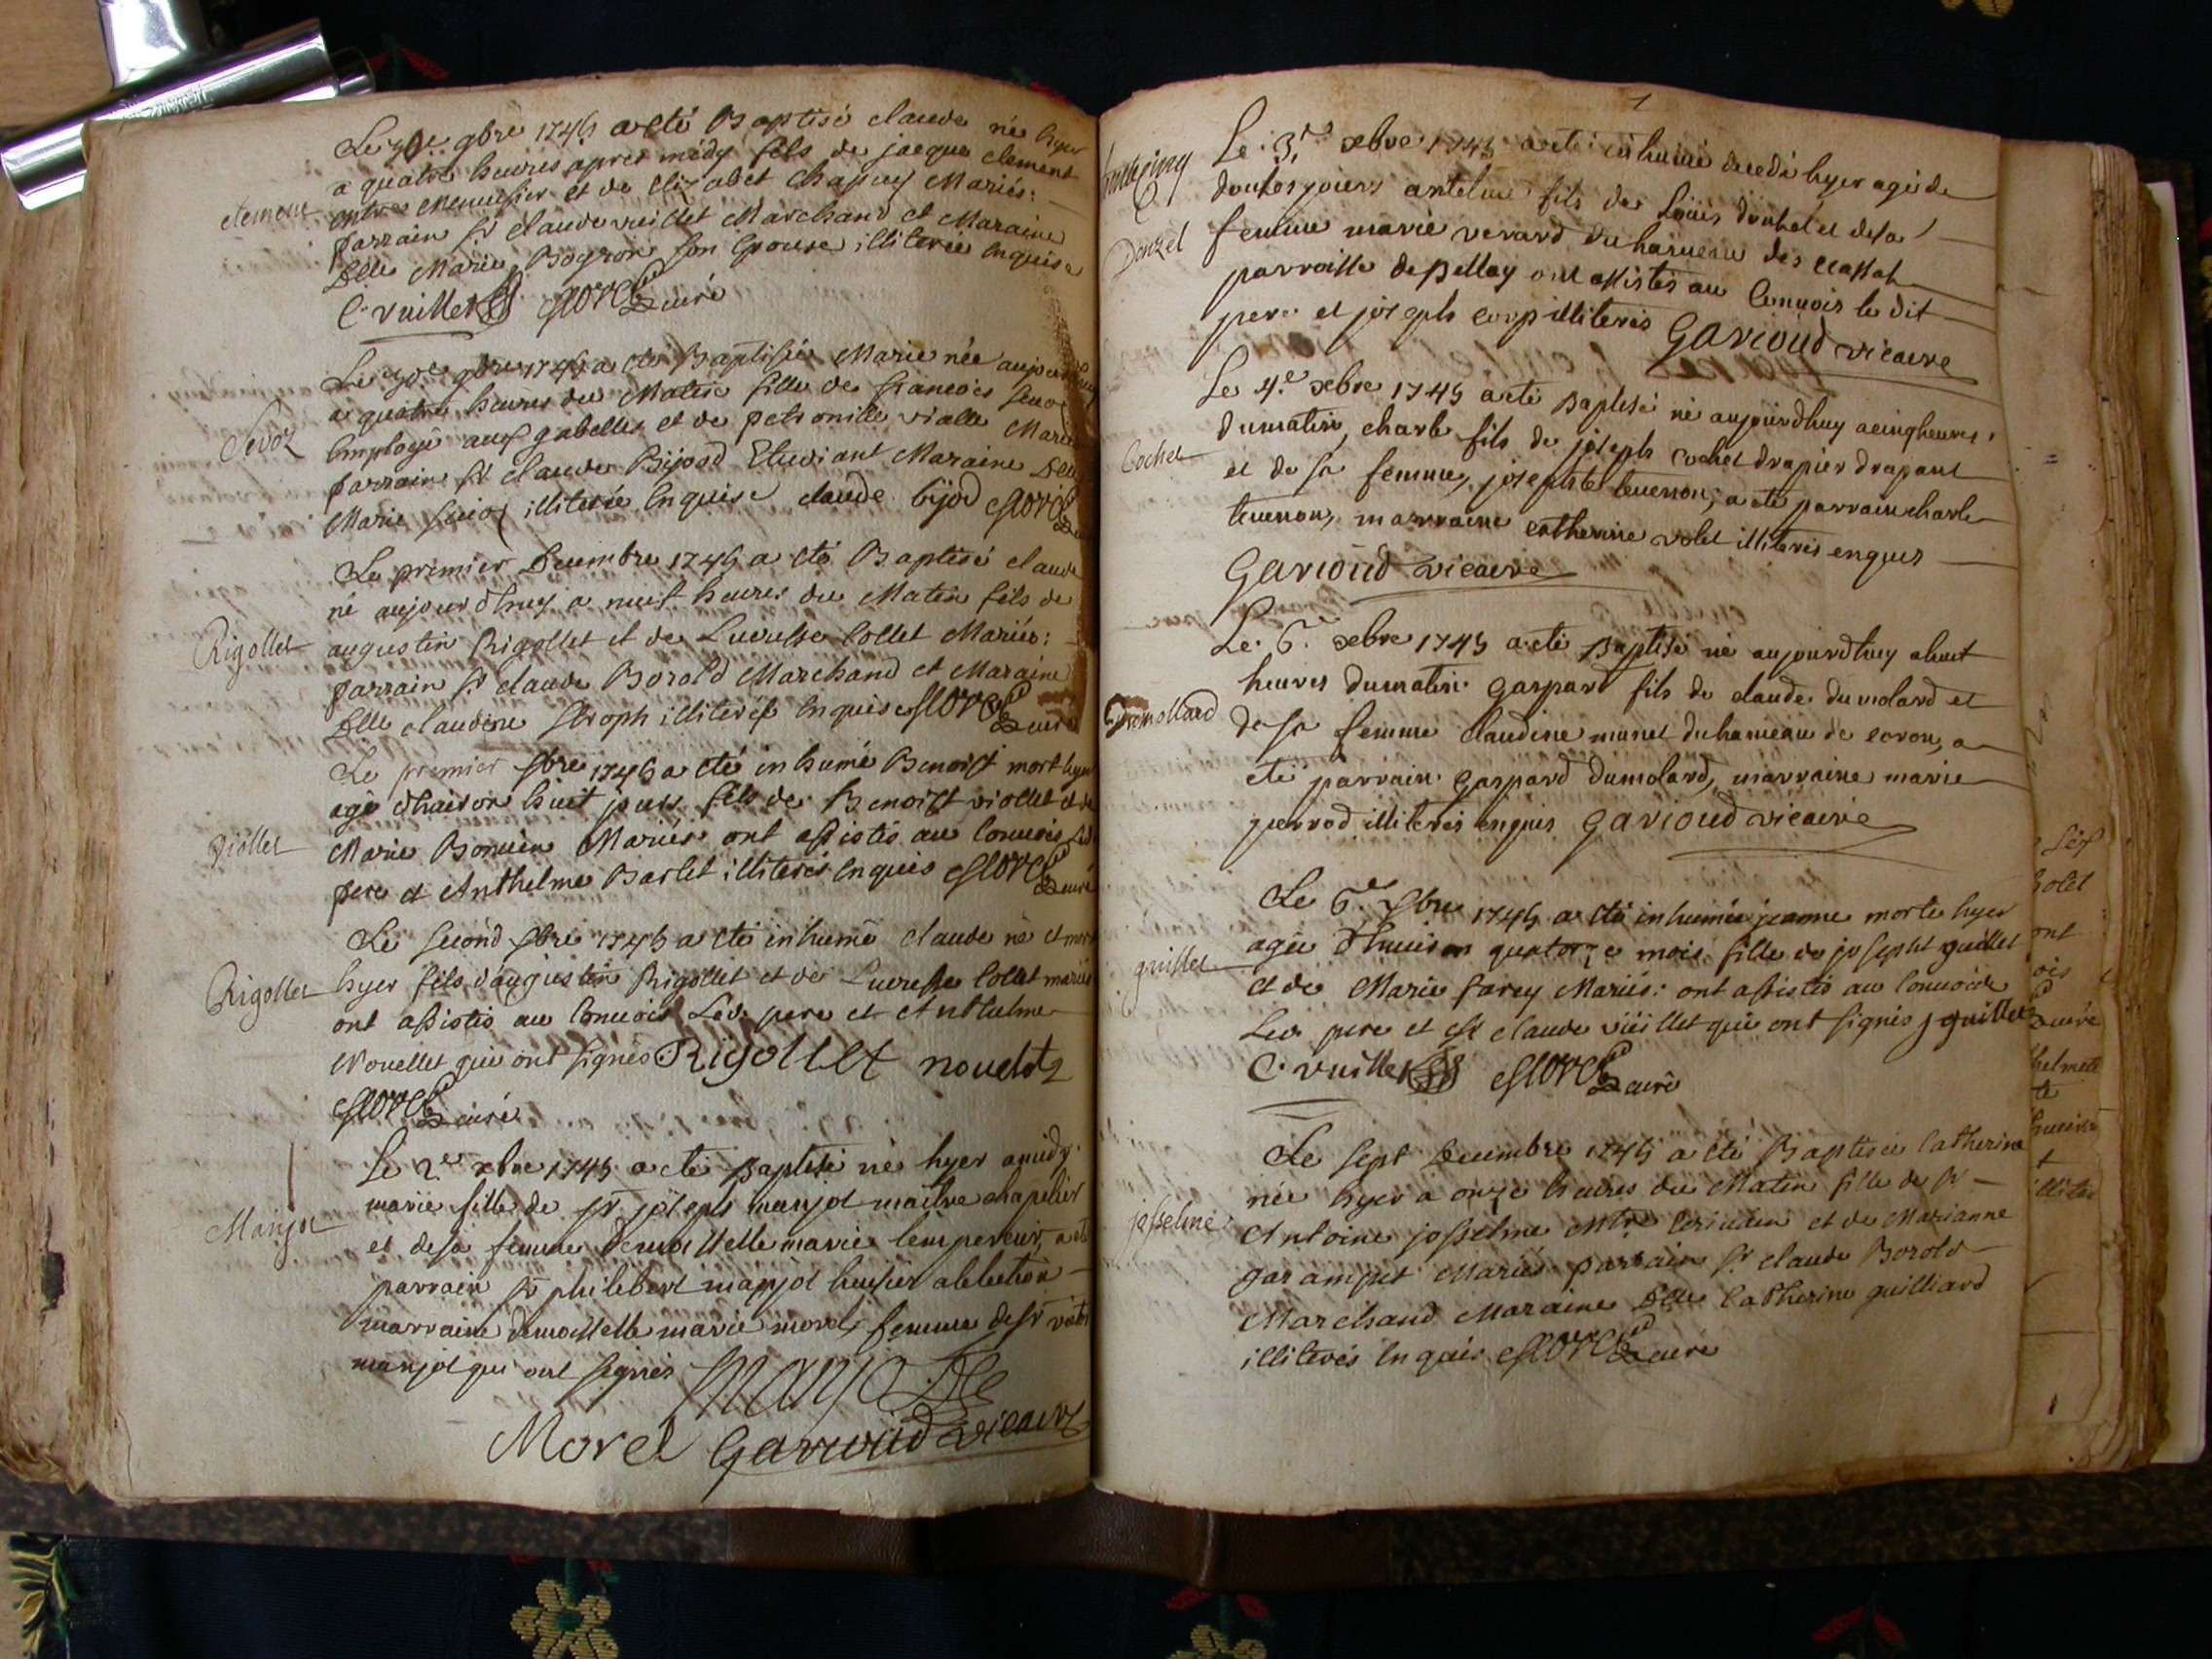 Le 30e 9bre 1745 a eté Baptisé claude né hyer
a quatre heures apres midy fils de jacque clement
clement
Mtre Menuisier et de Elizabet Chapuy Mariés:
parrain Sr claude vuillet Marchand et Maraine
Delle Marie Bogron son Epouse illiterée Enquise
C. vuillet curé
Le 30e 9bre 1745 a eté Baptisée Marie née aujourdhuy
a quatre heures du Matin fille de francois
Sevoz
Employé aux gabelles et de petronille vialle
parrain Sr claude Bijod Etudiant Maraine Delle
Marie illiterée Enquise claude bijod
Le premier Decembre 1745 a eté Baptisé claude
né aujourdhuy a neuf heures du Matin fils de
Rigollet
augustin Rigollet et de Lucresse Collet Mariés:
parrain Sr claude Borold Marchand et Maraine
Delle claudine illiterés Enquis curé
Le premier Xbre 1745 a eté inhumé Benoist mort hyer
agé dhuiron huit jours fils de Benoist viollet et de
Viollet
Marie Bonnin Mariés ont assistés au Convois
pere et Anthelme Barlet illiterés Enquis curé
Le second Xbre 1745 a eté inhumé claude né et mort
Rigollet
hyer fils daugustin Rigollet et de Lucresse Collet mariés
ont assistés au Convois Led. pere et Anthelme
Nouellet qui ont signés Rigollet
curé
Le 2e xbre 1745 a eté Baptisé né hyer amidy
marie fille de Sr joseph manjot maitre chapelier
Manjot
et desa femme demoiselle marie lempereur, a eté
parrain Sr philibert manjot huissier
marraine demoiselle marie morel, femme de Sr
manjot qui ont signés
Morel Garioud vicaire
1
Le 3e xbre 1745 a eté inhumé decedé hyer agé de
douse jours antelme fils de Louis donzel et desa
Donzel
femme marie verard du hameau des
parroisse de Belley ont assistés au Convois le dit
pere et joseph illiterés Garioud vicaire
Le 4e xbre 1745 a eté Baptisé né aujourdhuy acinqheures
dumatin, charle fils de joseph cochet drapier drapant
Cochet
et de sa femme, josephte tenenon, a eté parraincharle
tenenon, marraine catherine volet illiterés enquis
Garioud vicaire
Le 6e xbre 1745 a eté Baptisé né aujourdhuy ahuit
heures dumatin Gaspard fils de claude dumolard et
Dumollard
desa femme Claudine munet duhameau de coron, a
eté parrain Gaspard dumolard, marraine marie
pierrod illiterés enquis Garioud vicaire
Le 6e Xbre 1745 a eté inhumée jeanne morte hyer
agée dhuiron quatorze mois fille de joseph guillet
guillet
et de Marie farey Mariés: ont assistés au Convoi
Led. pere et Sr claude vuillet qui ont signés j guillet
C. vuillet curé
Le sept Decembre 1745 a eté Baptisée Catherine
née hyer a onze heures du Matin fille de Sr
josselme
Antoine josselme Mtre et de Marianne
Mariés parrain Sr claude Borold
Marchand Maraine Delle Catherine guilliard
illiterés Enquis curé